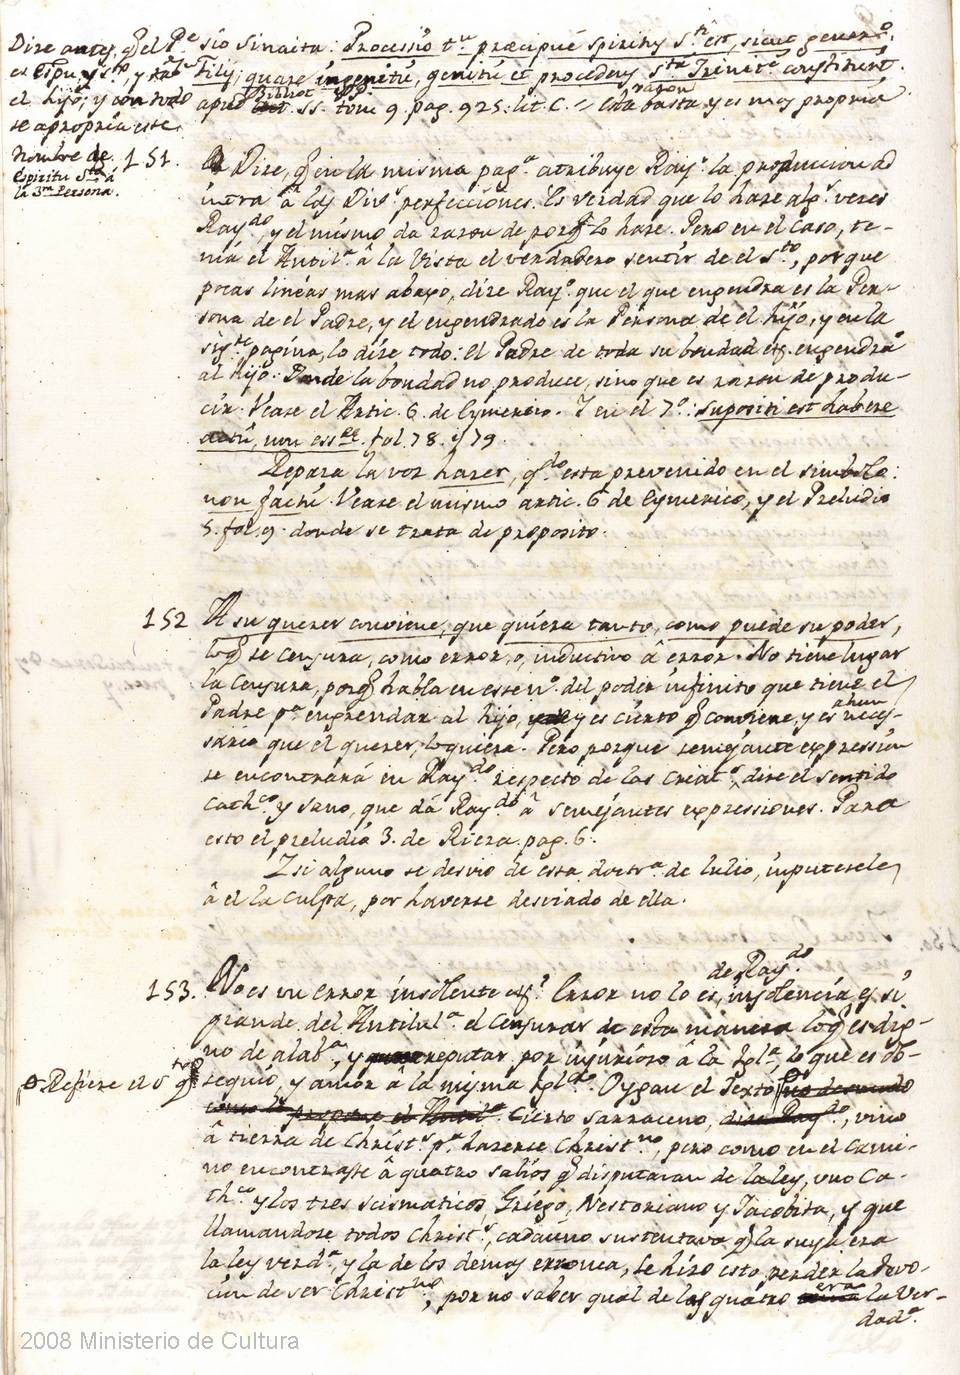 Dize antes, q̃ el P.e
es Espu, y s.to, y tãbn
el hijo; y con todo
se apropria este
Nombre de
Espiritu S.to á
la 3.ra Persona.
sio Sinaita: Processió t.u præcipué spiritus s.ti est, sicut generõ.
Filij; quare ingenitú, genitú et procedens S.ta Trinit.e constituunt.
apud Bibliot. SS. PP. tom. 9. pag. 925. lit. C. = Esta razon basta, y es muy propria
151. Dize, q̃ en la misma pag.a atribuye Ray.o la produccion ad
intra â las Div.s perfecciones. Es verdad que lo haze alg.s vezes
Ray.do, y el mismo da razon de porq̃ lo haze. Pero en el caso, te-
nia el Antil.a â la vista el verdadero sentir de el S.to, porque
pocas lineas mas abajo, dize Ray.o que el que engendra es la Per-
sona de el Padre, y el engendrado es la Persona de el hijo, y en la
sig.te pagina, lo dize todo: el Padre de toda su bondad etc. engendra
al hijo: Donde la bondad no produce, sino que es razon de produ-
cir. Vease el Artic. 6. de Eymerico. Y en el 7.o: supositi est habere
actú, non esse. fol. 78. y 79.
Repara la voz hazer, q.do esta prevenido en el simbolo:
non factú. Vease el mismo artic. 6 de Eymerico, y el Preludio
5. fol. 9. donde se trata de proposito.
152 A su querer conviene, que quiera tanto, como puede su poder,
loq̃ se censura, como error, o, inductivo â error. No tiene lugar
la censura, porq̃ habla en este n.o del poder infinito que tiene el
Padre p.a engendrar al hijo, y es cierto q̃ conviene, y es ahun neces-
sario que el querer, lo quiera. Pero porque semejante expression
se encontrará en Ray.do respecto de las creat.s, dize el sentido
Cath.co y sano, que dá Ray.do â semejantes expressiones. Para
esto el preludio 3. de Riera. pag. 6.
Y si alguno se desvio de esta doctr.a de Lulio, imputesele
â el la culpa, por haverse desviado de ella.
153. No es un error insolente etc.? Error no lo es, de Ray.do insolencia es si
grande del Antilul.a el censurar de esta manera loq̃ es dig-
no de alab.a, y reputar por injurioso â la Igl.a, lo que es ob-
sequio, y amor â la misma Igl.a Oygan el Texto
Refiere el S.to q̃
Cierto sarraceno, vino
â tierra de Christ.s p.a hazerse Christ.no, pero como en el cami-
no encontrasse â quatro sabios q̃ disputavan de la ley, uno Ca-
th.co y los tres scismaticos, Griego, Nestoriano y Jacobita, y que
llamandose todos Christ.s, cadauno sustentava q̃ la suya era
la ley verd.a, y la de los demas erronea, le hizo esto perder la devo-
cion de ser Christ.no, por no saber qual de las quatro era la Ver-
dad.a.
2008 Ministerio de Cultura